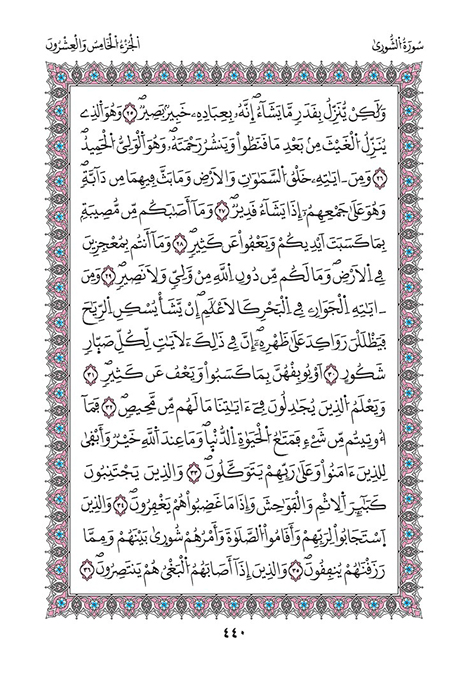 سُورَةُ الشُّورىٰ
الجُزْءُ الخَامِسُ وَالعِشْرُونَ
وَلَٰكِنْ يُّنَزِّلُ بِقَدَرٖ مَّا يَشَآءُۖ اِنَّهُۥ بِعِبَادِهِۦ خَبِيرُۢ بَصِيرٞۖ ٢٥ وَهُوَ اَلذِے
يُنَزِّلُ الْغَيْثَ مِنۢ بَعْدِ مَا قَنَطُواْ وَيَنشُرُ رَحْمَتَهُۥۖ وَهُوَ اَلْوَلِيُّ الْحَمِيدُۖ
٢٦ وَمِنَ ـايَٰتِهِۦ خَلْقُ السَّمَٰوَٰتِ وَالَارْضِ وَمَا بَثَّ فِيهِمَا مِن دَآبَّةٖۖ
وَهُوَ عَلَىٰ جَمْعِهِمُۥٓ إِذَا يَشَآءُ قَدِيرٞۖ ٢٧ وَمَآ أَصَٰبَكُم مِّن مُّصِيبَةٖ
بِمَا كَسَبَتَ اَيْدِيكُمْ وَيَعْفُواْ عَن كَثِيرٖۖ ٢٨ وَمَآ أَنتُم بِمُعْجِزِينَ
فِے الَارْضِۖ وَمَا لَكُم مِّن دُونِ اِللَّهِ مِنْ وَّلِيّٖ وَلَا نَصِيرٖۖ ٢٩ وَمِنَ
ـايَٰتِهِ اِلْجَوَارِۦ فِے اِلْبَحْرِ كَالَاعْلَٰمِۖ إِنْ يَّشَأْ يُسْكِنِ اِلرِّيَٰحَ
فَيَظْلَلْنَ رَوَاكِدَ عَلَىٰ ظَهْرِهِۦٓۖ إِنَّ فِے ذَٰلِكَ لَأٓيَٰتٖ لِّكُلِّ صَبَّارٖ
شَكُورٍۖ ٣٠ اَوْ يُوبِقْهُنَّ بِمَا كَسَبُواْ وَيَعْفُ عَن كَثِيرٖۖ ٣١
وَيَعْلَمُ الذِينَ يُجَٰدِلُونَ فِےٓ ءَايَٰتِنَا مَا لَهُم مِّن مَّحِيصٖۖ ٣٢ فَمَآ
أُوتِيتُم مِّن شَےْءٖ فَمَتَٰعُ الْحَيَوٰةِ اِلدُّنْيَاۖ وَمَا عِندَ اَللَّهِ خَيْرٞ وَأَبْقَىٰ
لِلذِينَ ءَامَنُواْ وَعَلَىٰ رَبِّهِمْ يَتَوَكَّلُونَۖ ٣٣ وَالذِينَ يَجْتَنِبُونَ
كَبَٰٓئِرَ اَلِاثْمِ وَالْفَوَٰحِشَ وَإِذَا مَا غَضِبُواْ هُمْ يَغْفِرُونَۖ ٣٤ وَالذِينَ
اَسْتَجَابُواْ لِرَبِّهِمْ وَأَقَامُواْ الصَّلَوٰةَ وَأَمْرُهُمْ شُورَىٰ بَيْنَهُمْ وَمِمَّا
رَزَقْنَٰهُمْ يُنفِقُونَۖ ٣٥ وَالذِينَ إِذَآ أَصَابَهُمُ الْبَغْيُ هُمْ يَنتَصِرُونَۖ ٣٦
٤٤٠